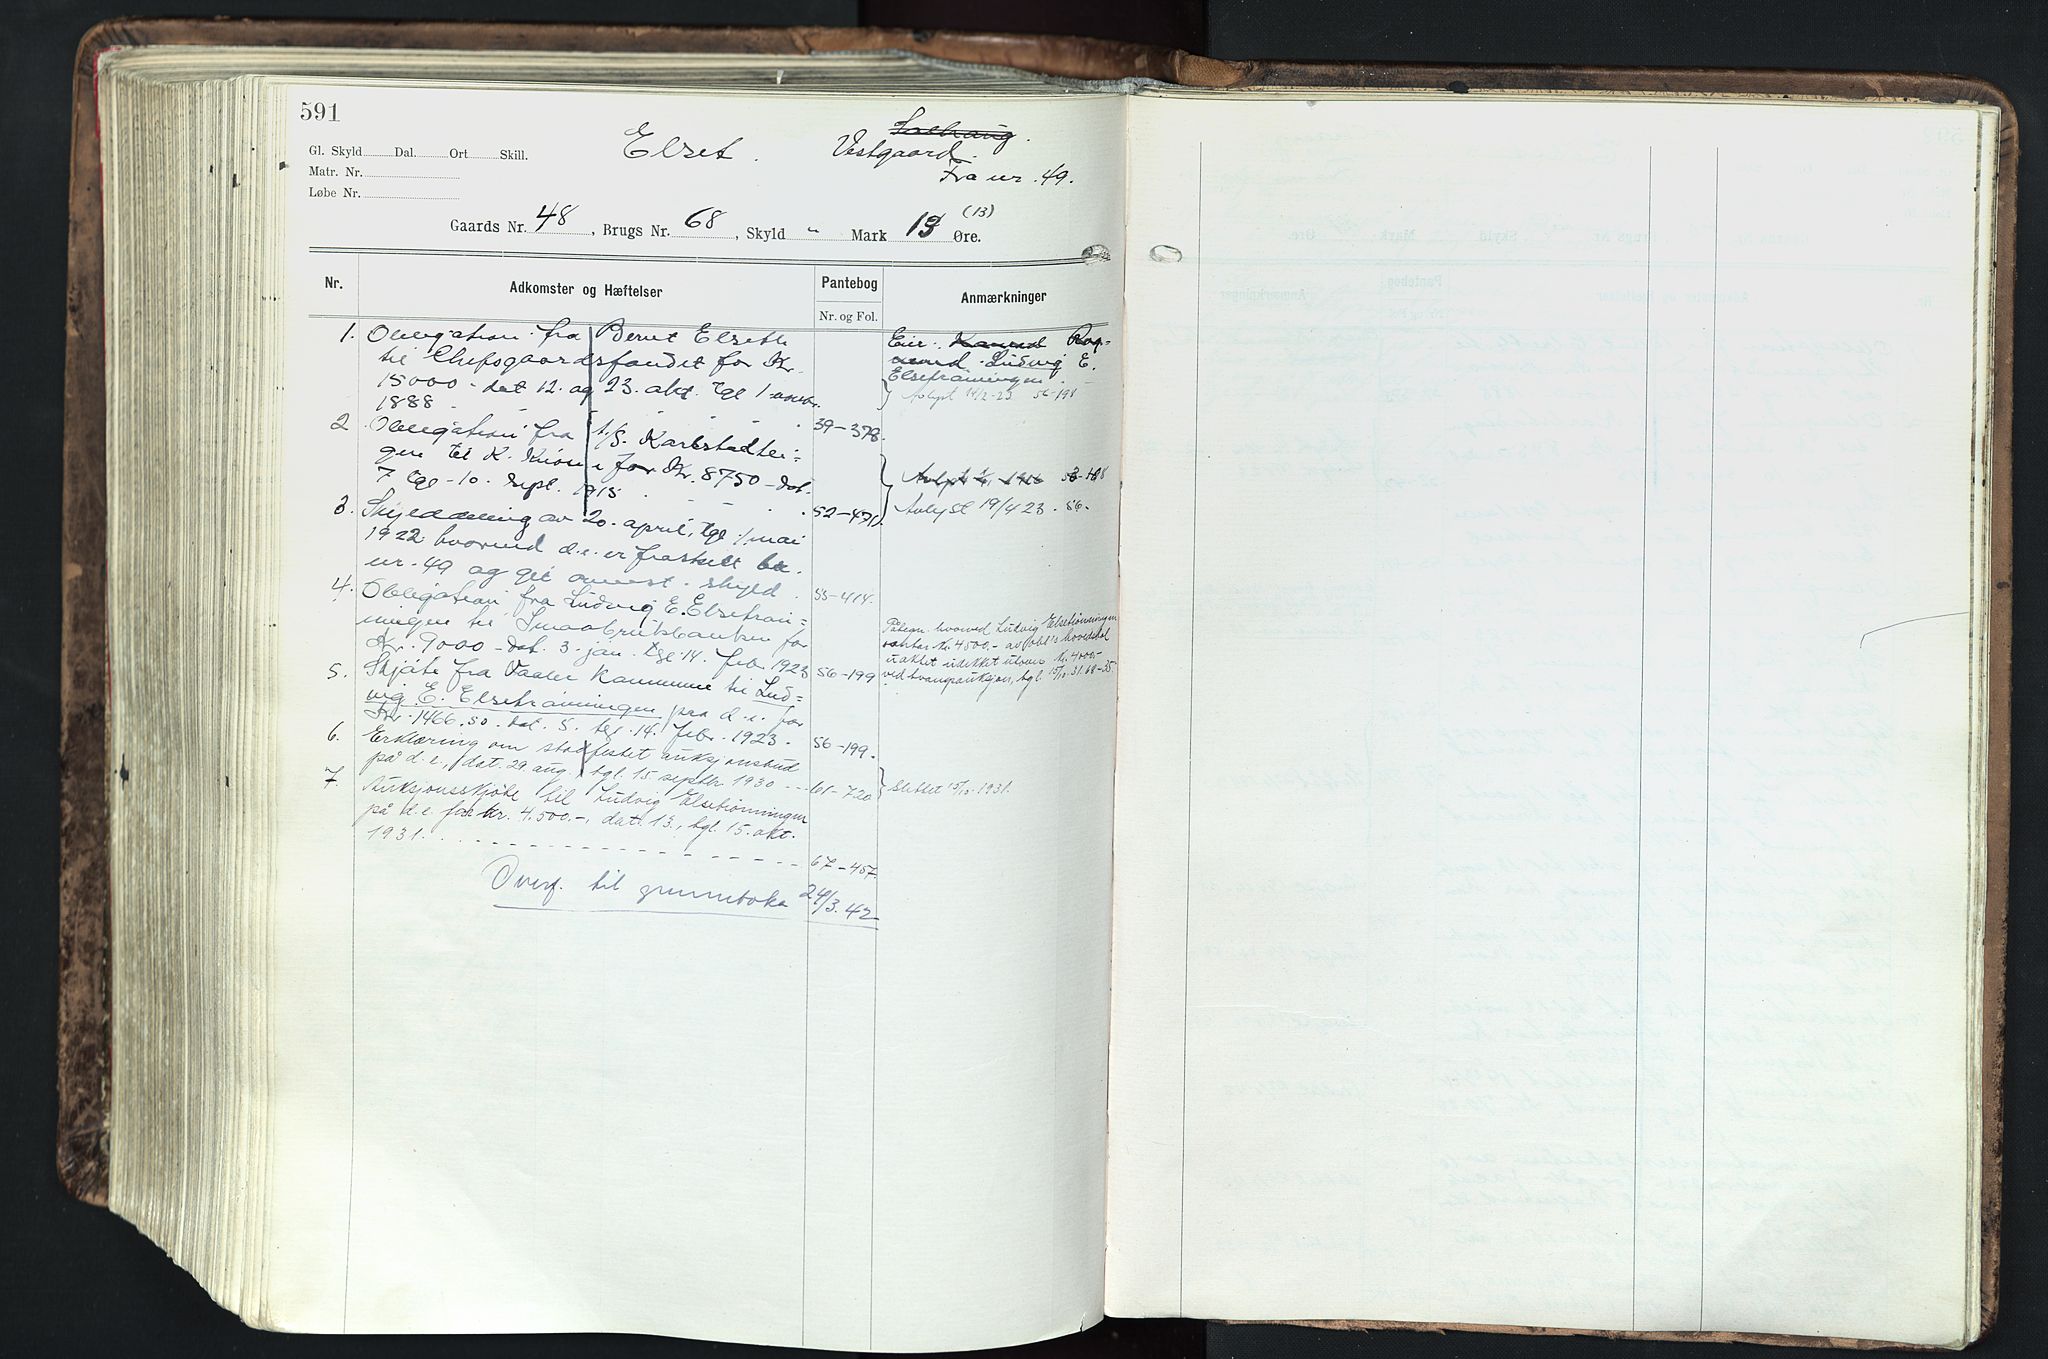 591
Elset. Vestgaard.
Fra nr. 49.
Gl. Skyld Dal. Ort Skill.
Matr. Nr.
Løbe Nr.
Gaards Nr. 48, Brugs Nr. 68, Skyld " Mark 13 Øre. (13)
Nr. Adkomster og Hæftelser Pantebog Anmærkninger
Nr. og Fol.
1. Obligation fra Bernt Elseth
til Chefsgaardsfondet for Kr.
15000 - dat 12. og 23. okt. tgl 1 novbr.
1888 39-378
2 Obligation fra A/S. Karlstadtei-
gen til K. Kiøn for Kr. 8750 - dat.
7 tgl - 10. sept. 1915 52-471
3. Skylddeling av 20. april, tgl 1 mai
1922 hvorved d.e. er fraskilt br.
nr. 49 og git anvist skyld 55-414.
4. Obligation fra Ludvig E. Elsetrøn-
ningen til Smaabrukbanken for
Kr. 9000 - dat. 3. jan. tgl 14. febr. 1923 56-199
5. Skjøte fra Vaaler Kommune til Lud-
vig E. Elsetrønningen paa d.e. for
Kr. 1466.50. dat. 5. tgl. 14. febr. 1923. 56-199.
6. Erklæring om stadfestet auksjonsbud
på d.e., dat. 29 aug., tgl. 15. septbr 1930 61-720
7. Auksjonsskjøte til Ludvig Elsetrønningen
på d.e. for kr. 4.500.-, dat. 13., tgl. 15. okt.
1931. 67-457.
Overf. til grunnboka 24/3.42
Eier: Ludvig E.
Elsetrønningen
Avlyst 14/2-23 56-198
Avlyst 19/4 23. 56.
Påtegn. hvorved Ludvig Elsetrønningen
svarer kr. 4500.- av obl's hovedstol
uaktet udekket utover kr. 4000.-
ved tvangsauksjon, tgl. 15/10.31. 68-35
slettet 15/10-1931.